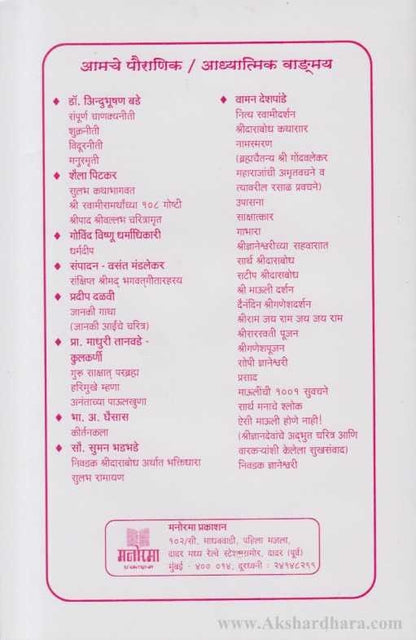 आमचे पौराणिक / आध्यात्मिक वाङ्मय
♦ डॉ. अिन्दुभूषण बडे
संपूर्ण चाणक्यनीती
शुक्रनीती
विदूरनीती
मनुस्मृती
♦ शैला पिटकर
सुलभ कथाभागवत
श्री स्वामीसमर्थांच्या १०८ गोष्टी
श्रीपाद श्रीवल्लभ चरित्रामृत
♦ गोविंद विष्णू धर्माधिकारी
धर्मदीप
♦ संपादन - वसंत मंडलेकर
संक्षिप्त श्रीमद् भगवत्गीतारहस्य
♦ प्रदीप दळवी
जानकी गाथा
(जानकी आईचे चरित्र)
♦ प्रा. माधुरी तानवडे -
कुलकर्णी
गुरू साक्षात् परब्रह्म
हरिमुखे म्हणा
अनंताच्या पाऊलखुणा
♦ भा. अ. घैसास
कीर्तनकला
♦ सौ. सुमन भडभडे
निवडक श्रीदासबोध अर्थात भक्तिधारा
सुलभ रामायण
♦ वामन देशपांडे
नित्य स्वामीदर्शन
श्रीदासबोध कथासार
नामस्मरण
(ब्रह्मचैतन्य श्री गोंदवलेकर
महाराजांची अमृतवचने व
त्यावरील रसाळ प्रवचने)
उपासना
साक्षात्कार
गाभारा
श्रीज्ञानेश्वरीच्या सहवासात
सार्थ श्रीदासबोध
सटीप श्रीदासबोध
श्री माऊली दर्शन
दैनंदिन श्रीगणेशदर्शन
श्रीराम जय राम जय जय राम
श्रीसरस्वती पूजन
श्रीगणेशपूजन
सोपी ज्ञानेश्वरी
प्रसाद
माऊलींची १००१ सुवचने
सार्थ मनाचे श्लोक
ऐसी माऊली होणे नाही!
(श्रीज्ञानदेवांचे अद्‌भुत चरित्र आणि
वारकऱ्यांशी केलेला सुखसंवाद)
निवडक ज्ञानेश्वरी
मनोरमा
प्रकाशन
मनोरमा प्रकाशन
१०२/सी, माधववाडी, पहिला मजला,
दादर मध्य रेल्वे स्टेशनसमोर, दादर (पूर्व)
मुंबई - ४०० ०१४, दूरध्वनी : २४१४८२११
www.Akshardhara.com